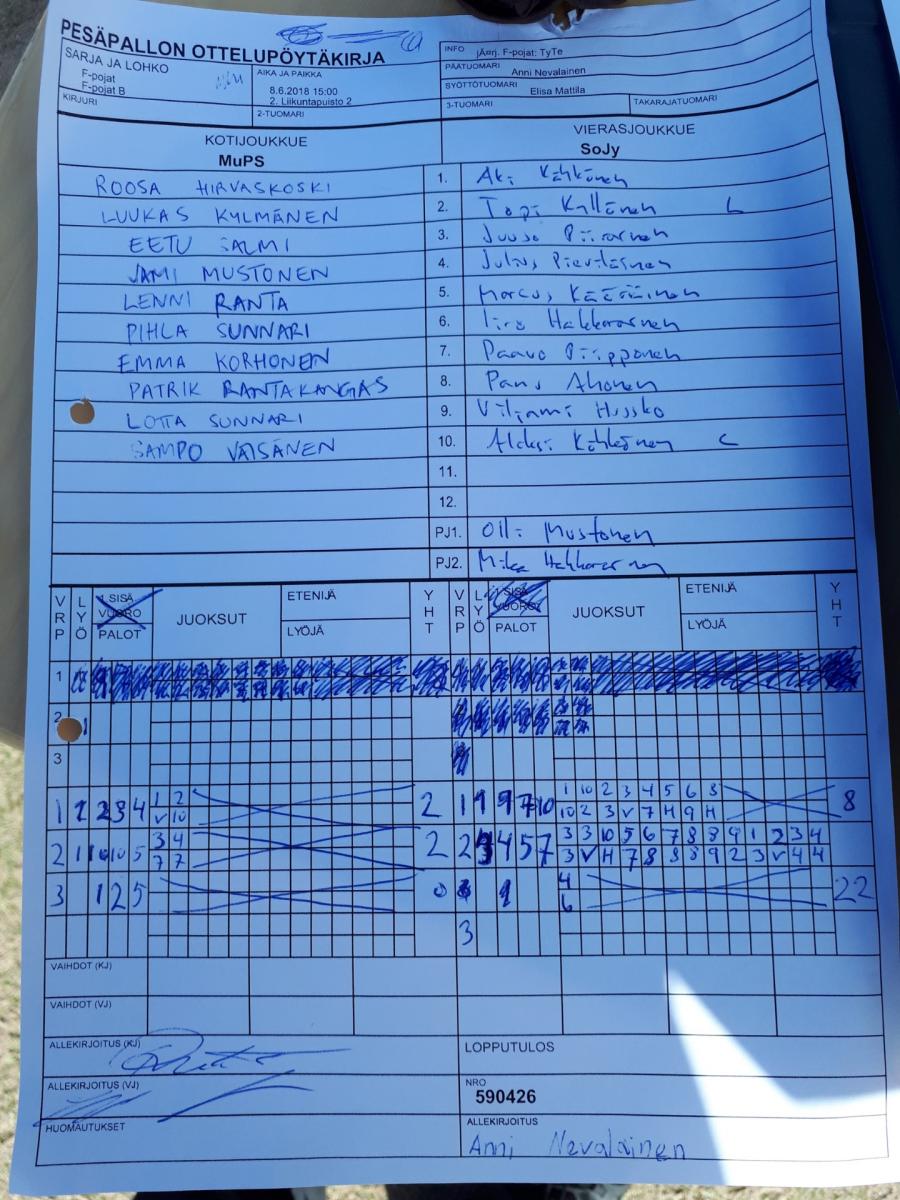 PESÄPALLON OTTELUPÖYTÄKIRJA
SARJA JA LOHKO
F-pojat
F-pojat B
KIRJURI
AIKA JA PAIKKA
8.6.2018 15:00
2. Liikuntapuisto 2
2-TUOMARI
INFO
jÄørj. F-pojat: TyTe
PÄÄTUOMARI
Anni Nevalainen
SYÖTTÖTUOMARI
Elisa Mattila
3-TUOMARI
TAKARAJATUOMARI
KOTIJOUKKUE
MuPS
VIERASJOUKKUE
SoJy
ROOSA HIRVASKOSKI 1. Aki Kähkönen
LUUKAS KYLMÄNEN 2. Topi Kyllönen L
EETU SALMI 3. Juuso
JAMI MUSTONEN 4. Julius
LENNI RANTA 5. Marcus Kääriäinen
PIHLA SUNNARI 6. Iiro Hakkarainen
EMMA KORHONEN 7. Paavo Piipponen
PATRIK RANTAKANGAS 8. Panu Ahonen
LOTTA SUNNARI 9. Viljami Huusko
SAMPO VÄISÄNEN 10. Aleksi Kähkönen C
11.
12.
PJ1. Olli Mustonen
PJ2. Mika Hakkarainen
VRP LYÖ 1.SISÄ VUORO PALOT JUOKSUT ETENIJÄ LYÖJÄ YHT VRP LYÖ 1.SISÄ VUORO PALOT JUOKSUT ETENIJÄ LYÖJÄ YHT
1
2
3
1 2 3 4 1 2 2 1 1 9 7 10 1 10 2 3 4 5 6 8 8
V 10 10 2 3 V 7 H 9 H
2 10 5 3 4 2 2 4 5 7 3 3 10 5 6 7 8 8 9 1 2 3 4
7 7 3 V H 7 8 8 8 9 2 3 V 4 4
3 1 2 5 0 4 22
6
3
VAIHDOT (KJ)
VAIHDOT (VJ)
ALLEKIRJOITUS (KJ)
ALLEKIRJOITUS (VJ)
HUOMAUTUKSET
LOPPUTULOS
NRO
590426
ALLEKIRJOITUS
Anni Nevalainen